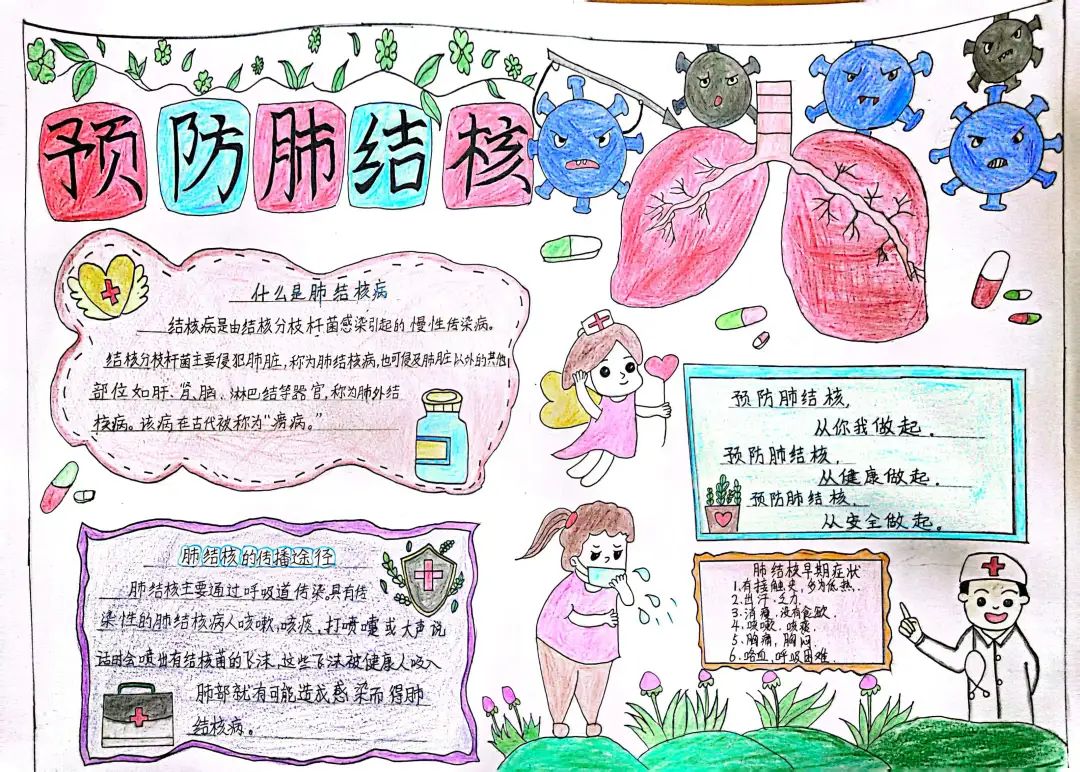 预防肺结核
什么是肺结核病
结核病是由结核分枝杆菌感染引起的慢性传染病。
结核分枝杆菌主要侵犯肺脏,称为肺结核病,也可侵及肺脏以外的其他
部位如肝、肾、脑、淋巴结等器官,称为肺外结
核病。该病在古代被称为“痨病。”
预防肺结核,
从你我做起.
预防肺结核,
从健康做起.
预防肺结核,
从安全做起。
肺结核的传播途径
肺结核主要通过呼吸道传染。具有传
染性的肺结核病人咳嗽,咳痰、打喷嚏或大声说
话时会喷出有结核菌的飞沫,这些飞沫被健康人吸入
肺部就有可能造成感染而得肺
结核病。
肺结核早期症状
1.有接触史,多为低热,.
2.出汗.乏力.
3.消瘦,没有食欲.
4.咳嗽、咳痰.
5.胸痛,胸闷
6.咯血,呼吸困难.